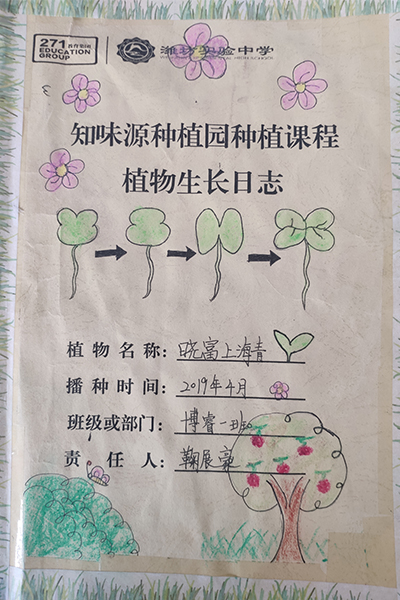 271 教育集团
EDUCATION
GROUP
潍坊实验中学
知味源种植园种植课程
植物生长日志
植物名称：晓富上海青
播种时间：2019年4月
班级或部门：博睿一班
责任人：鞠展豪